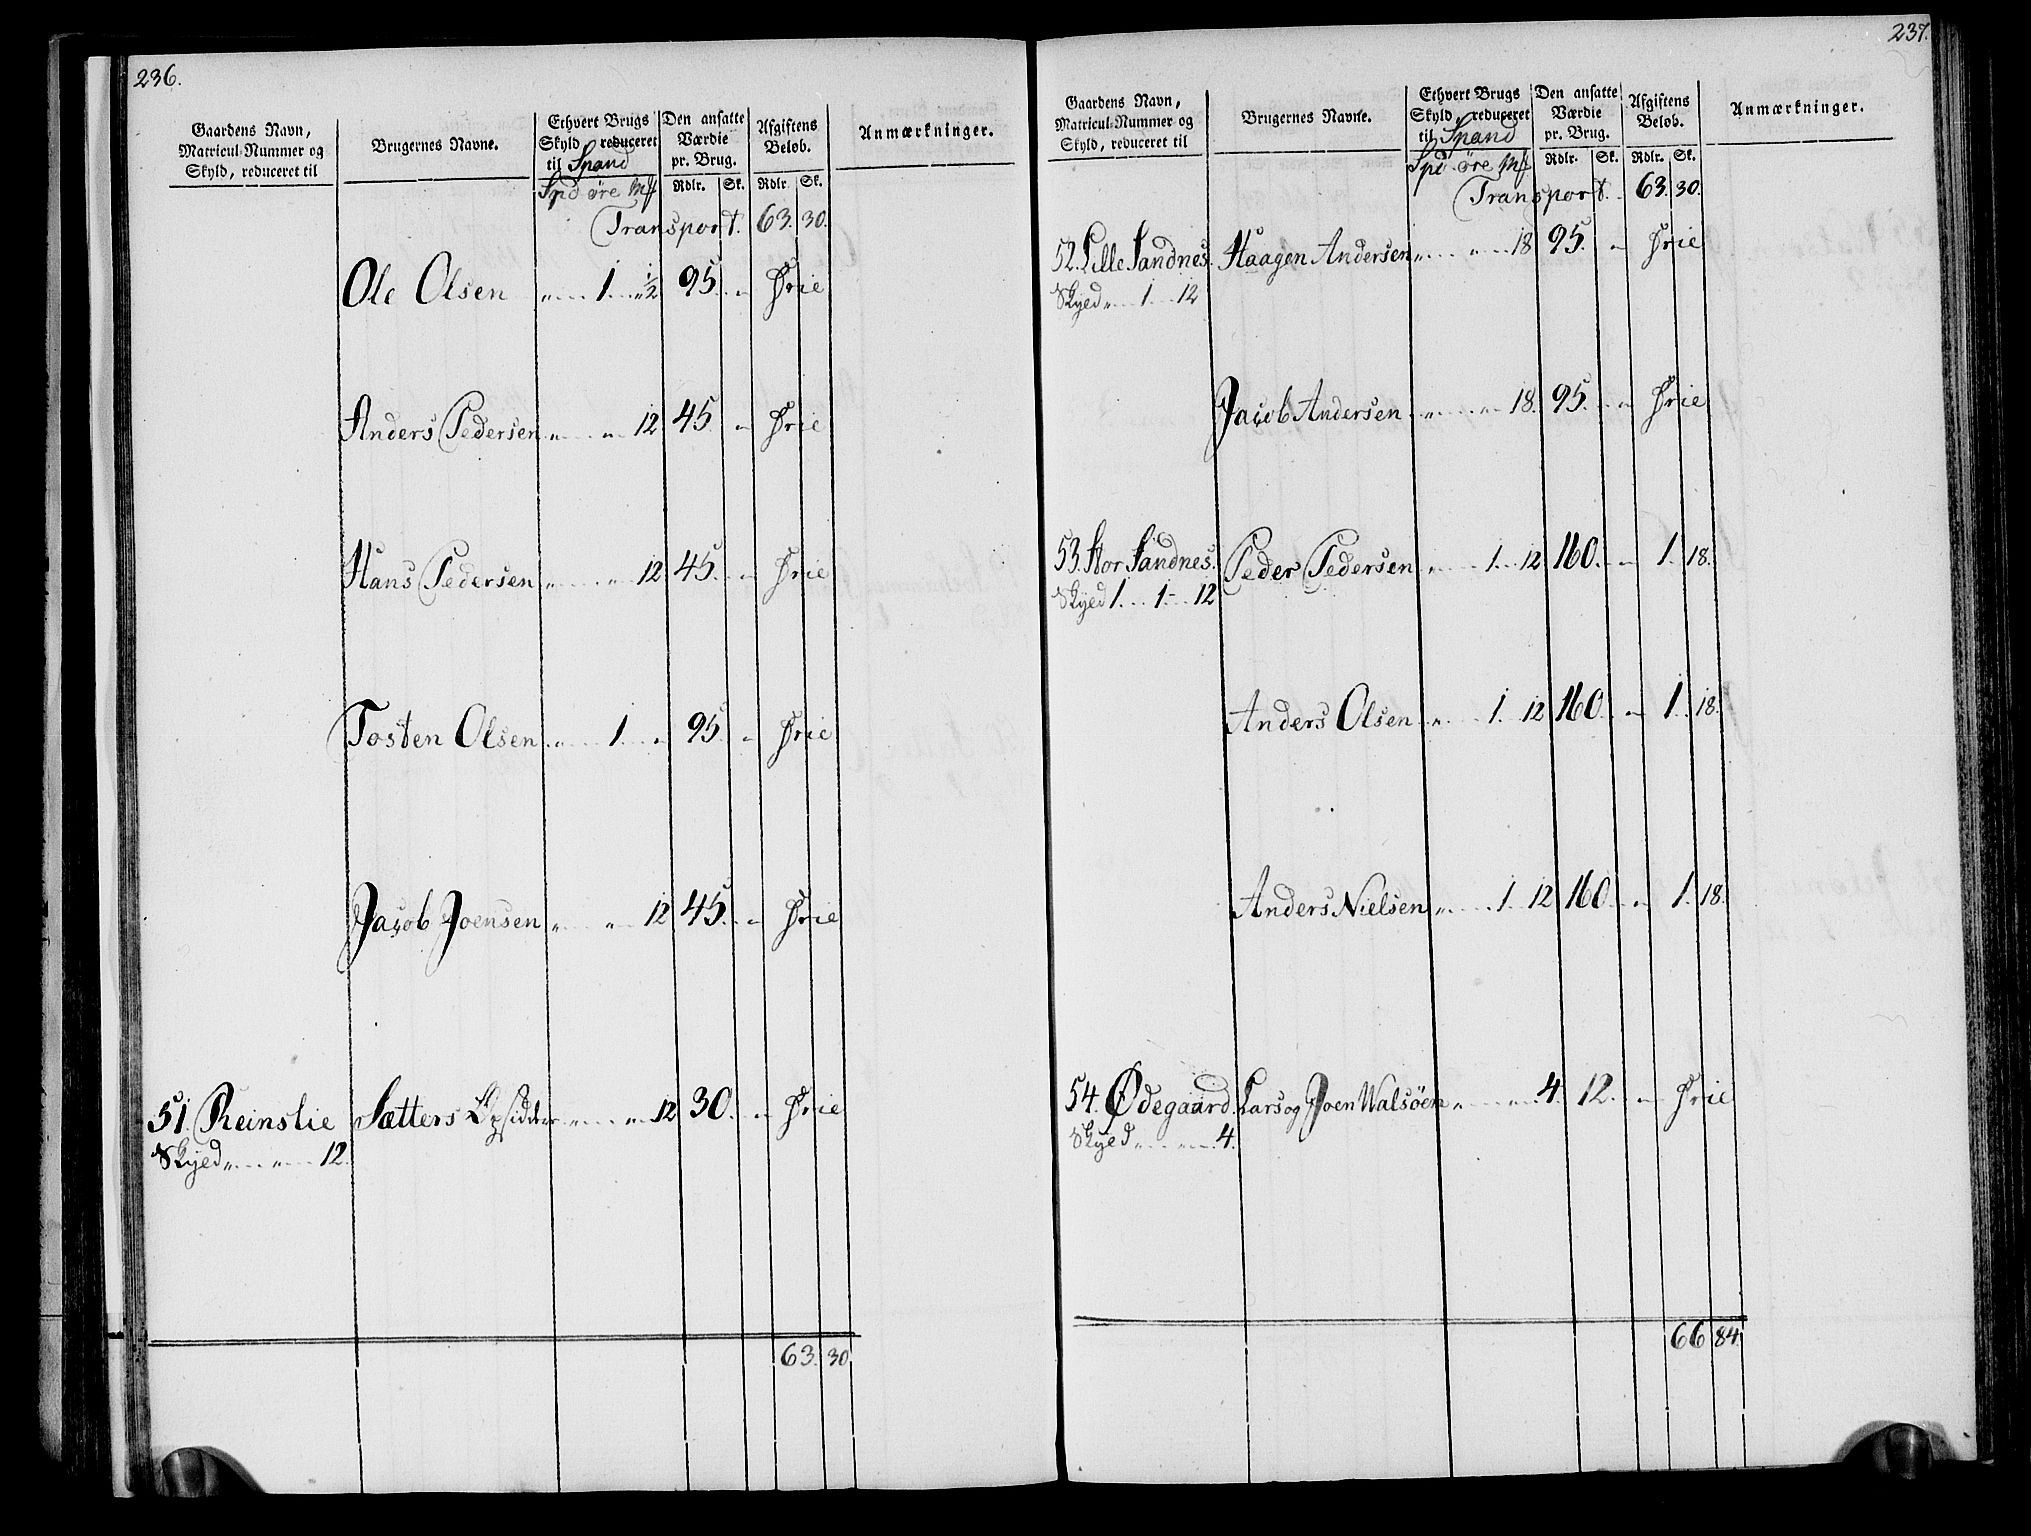 236.
Gaardens Navn, Matricul-Nummer og Skyld, reduceret til
Brugernes Navne.
Ethvert Brugs Skyld reduceret til Spand
Spd øre Mk
Den ansatte Værdie pr. Brug.
Rdlr. Sk.
Afgiftens Beløb.
Rdlr. Sk.
Anmærkninger.
Transport. 63. 30.
Ole Olsen „ 1. „½ 95. „ Frie
Anders Pedersen „ „ 12 45 „ Frie
Hans Pedersen „ „ 12 45. „ Frie
Tosten Olsen „ 1. „ 95. „ Frie
Jacob Joensen „ „ 12 45. „ Frie
51. Reinslie Sætters Opsidder „ „ 12 30. „ Frie
Skyed „ „ 12.
63. 30
237.
Gaardens Navn, Matricul-Nummer og Skyld, reduceret til
Brugernes Navne.
Ethvert Brugs Skyld reduceret til Spand
Spd øre Mk
Den ansatte Værdie pr. Brug.
Rdlr. Sk.
Afgiftens Beløb.
Rdlr. Sk.
Anmærkninger.
Transport. 63. 30.
52. Lille Sandnes. Haagen Andersen „ „ 18 95. „ Frie
Skyed „ 1. 12
Jacob Andersen „ „ 18. 95. „ Frie
53. Stor Sandnes. Peder Pedersen „ 1. 12 160. „ 1. 18.
Skyed 1. 1. 12
Anders Olsen „ 1. 12 160. „ 1. 18.
Anders Nielsen „ 1. 12 160. „ 1. 18.
54. Ødegaard. Lars og Joen Walsöen „ „ 4. 12. „ Frie
Skyed „ „ 4.
66 84